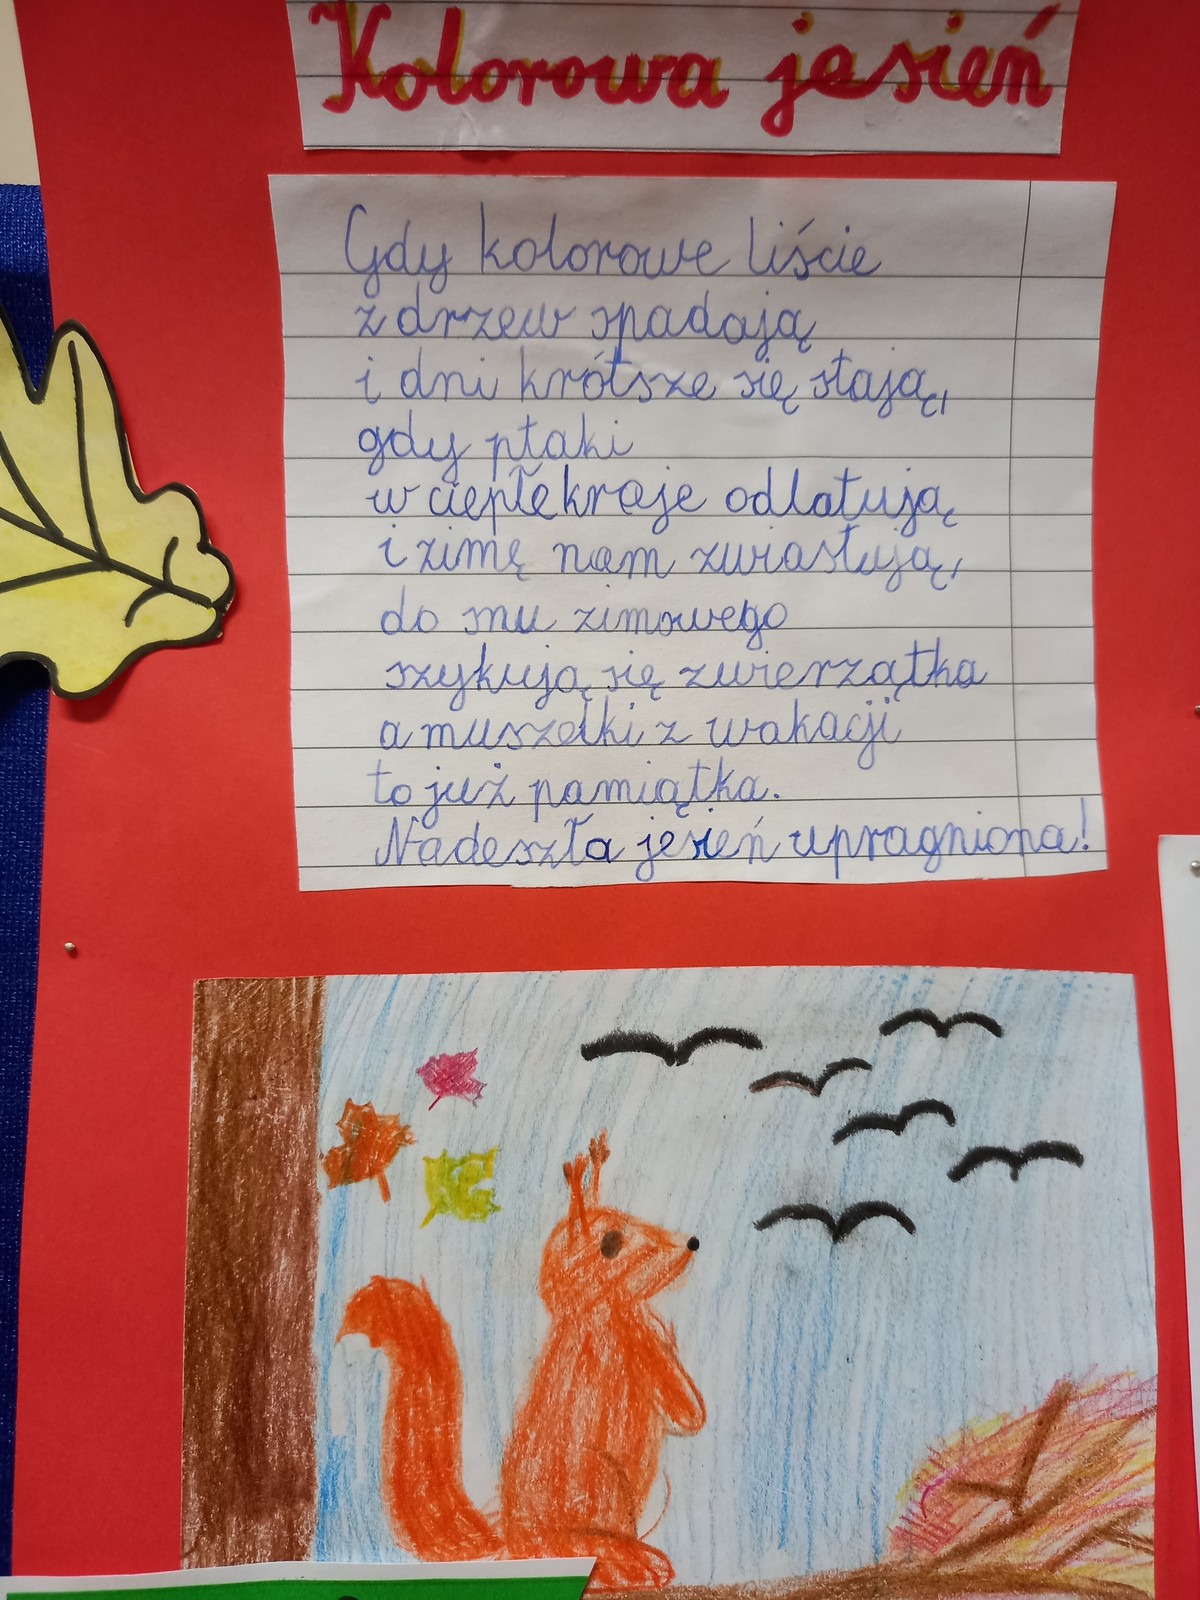 Kolorowa jesień
Gdy kolorowe liście
z drzew spadają
i dni krótsze się stają,
gdy ptaki
w ciepłe kraje odlatują
i zimę nam zwiastują,
do snu zimowego
szykują się zwierzątka
a muszelki z wakacji
to już pamiątka.
Nadeszła jesień upragniona!